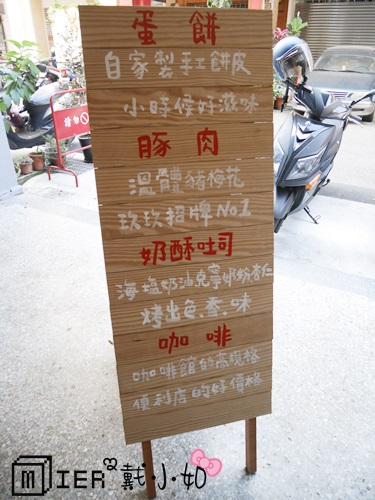 蛋餅
自家製手工餅皮
小時候好滋味
豚肉
溫體豬梅花
玖玖招牌No1
奶酥吐司
海塩奶油克寧奶粉杏仁
烤出色.香.味
咖啡
咖啡館的高規格
便利店的好價格
MIER²戴小如